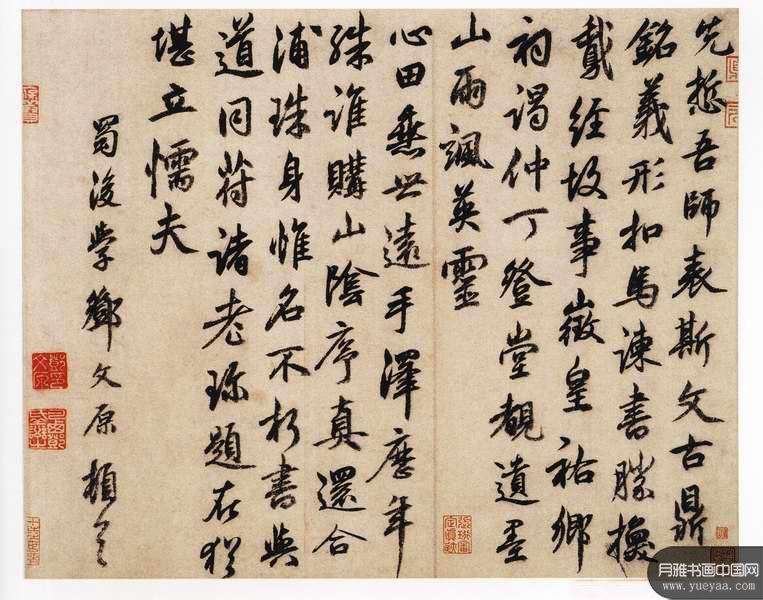 先悊吾師表斯文古鼎
銘義形扣馬諫書勝換
鵞經故事徵皇祐鄉
祠謁仲丁登堂覩遺墨
山雨颯英靈
心田垂世遠手澤歷年
殊誰購山陰序真還合
浦珠身惟名不朽書與
道同符諸老珎題在猶
堪立懦夫
蜀後學鄧文原頓首
月雅书画中国网
www.yueyaa.com